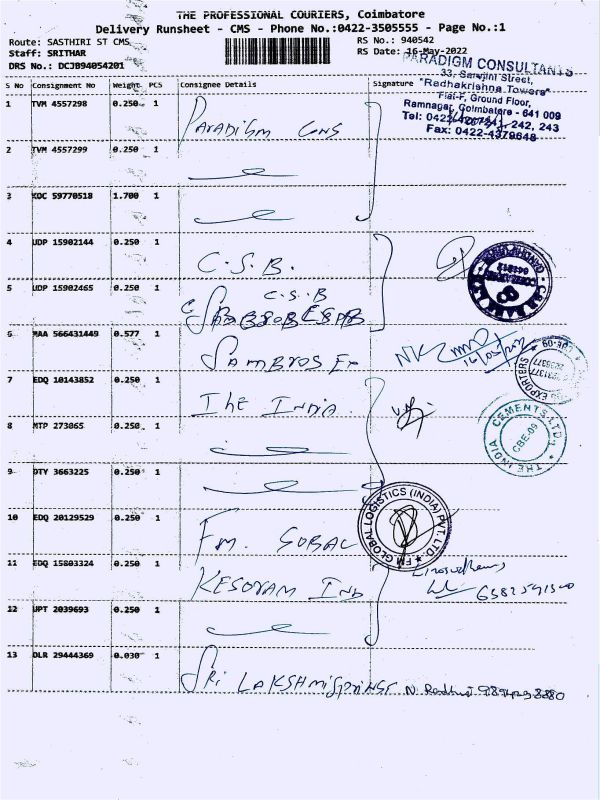 THE PROFESSIONAL COURIERS, Coimbatore
Delivery Runsheet - CMS - Phone No.:0422-3505555 - Page No.:1
Route: SASTHIRI ST CMS
Staff: SRITHAR
DRS No.: DCJB94054201
RS No.: 940542
RS Date: 16-May-2022
PARADIGM CONSULTANTS
33, Sarojini Street,
"Radhakrishna Towers"
Flat-F, Ground Floor,
Ramnagar, Coimbatore - 641 009
Tel: 0422 241, 242, 243
Fax: 0422-4379648
S No Consignment No Weight PCS Consignee Details Signature
1 TVM 4557298 0.250 1 PARADIGM CONS
2 TVM 4557299 0.250 1
3 KOC 59770518 1.700 1
4 UDP 15902144 0.250 1 C.S.B.
5 UDP 15902465 0.250 1 C.S.B
6 MAA 566431449 0.577 1 SAMBROS EX
7 EDQ 10143852 0.250 1 The INDIA
THE INDIA CEMENTS LTD.
CBE-09
8 MTP 273065 0.250 1
9 DTY 3663225 0.250 1
FM GLOBAL LOGISTICS (INDIA) PVT. LTD.
10 EDQ 20129529 0.250 1 FM. GOBAL
11 EDQ 15803324 0.250 1 KESORAM IND
12 UPT 2039693 0.250 1
13 DLR 29444369 0.030 1 SRI LAKSHMI